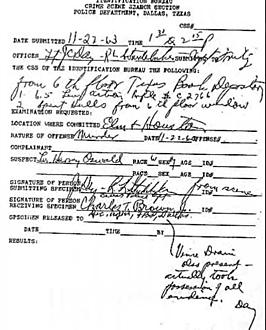 IDENTIFICATION BUREAU
CRIME SCENE SEARCH SECTION
POLICE DEPARTMENT, DALLAS, TEXAS
DATE SUBMITTED 11-22-63 TIME 1:30 & 2:15 P
OFFICER
THE CSS OF THE IDENTIFICATION BUREAU THE FOLLOWING:
from 6th floor Texas Book Depository
2 spent hulls from 6th floor window
EXAMINATION REQUESTED:
LOCATION WHERE COMMITTED Elm & Houston
NATURE OF OFFENSE Murder 11-22-63 DATE
COMPLAINANT
SUSPECT Lee Harvey Oswald RACE W SEX M AGE ID#
RACE SEX AGE ID#
SIGNATURE OF PERSON
SUBMITTING SPECIMEN Day from scene
SIGNATURE OF PERSON
RECEIVING SPECIMEN Charles T. Brown Jr.
SPECIMEN RELEASED TO
DATE TIME
RESULTS:
Vince Drain
also present -
actually took
possession of all
evidence.
Day